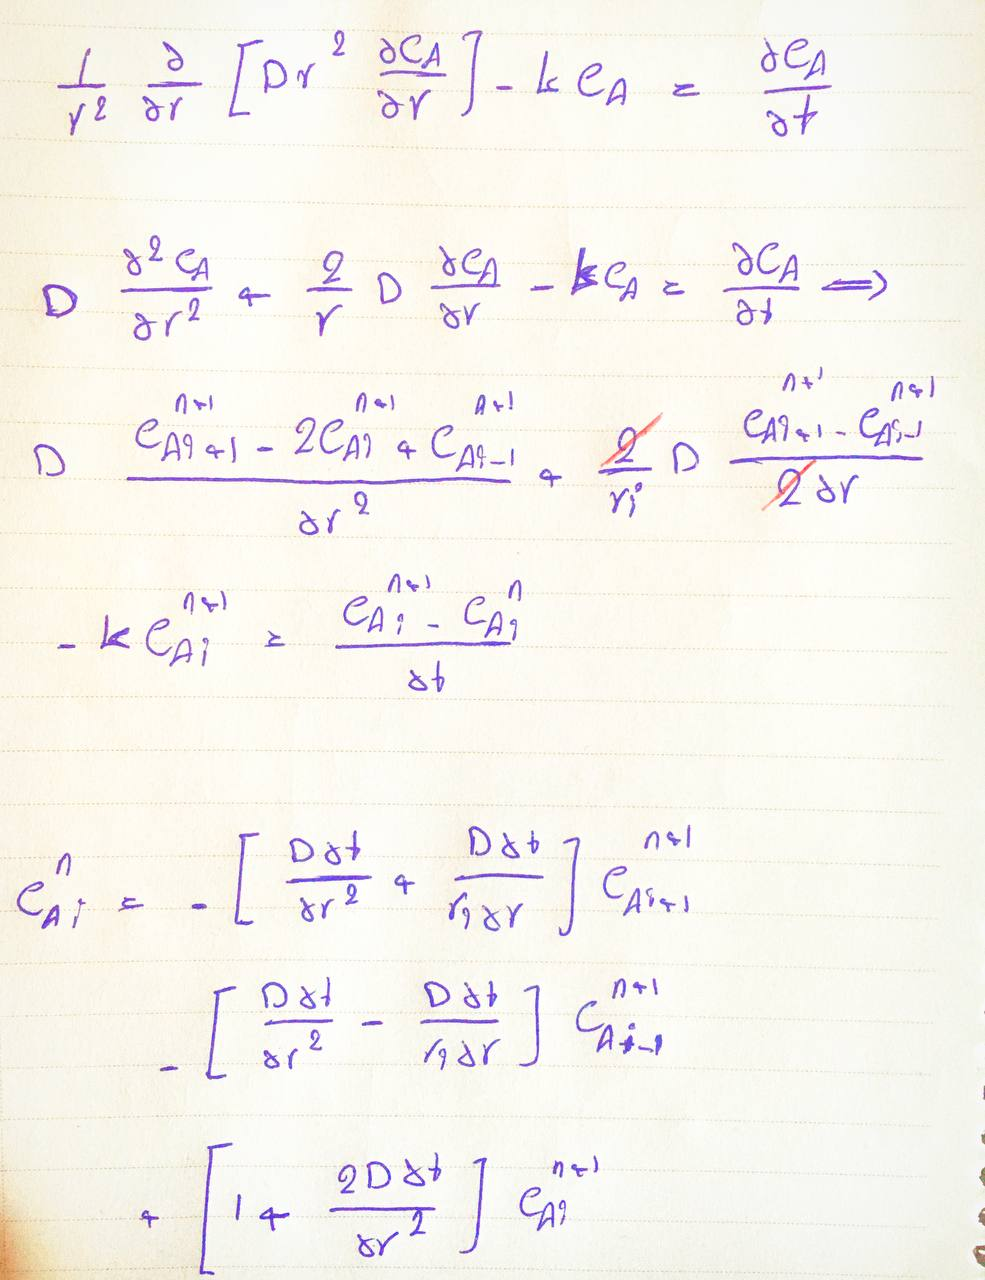 1/r² ∂/∂r [Dr² ∂C_A/∂r] - kC_A = ∂C_A/∂t
D ∂²C_A/∂r² + 2/r D ∂C_A/∂r - kC_A = ∂C_A/∂t ⟹
D (C_{Ai+1}^{n+1} - 2C_{Ai}^{n+1} + C_{Ai-1}^{n+1})/∂r² + 2/r_i D (C_{Ai+1}^{n+1} - C_{Ai-1}^{n+1})/2∂r
- kC_{Ai}^{n+1} = (C_{Ai}^{n+1} - C_{Ai}^{n})/∂t
C_{Ai}^{n} = - [D∂t/∂r² + D∂t/r_i∂r] C_{Ai+1}^{n+1}
- [D∂t/∂r² - D∂t/r_i∂r] C_{Ai-1}^{n+1}
+ [1 + 2D∂t/∂r²] C_{Ai}^{n+1}